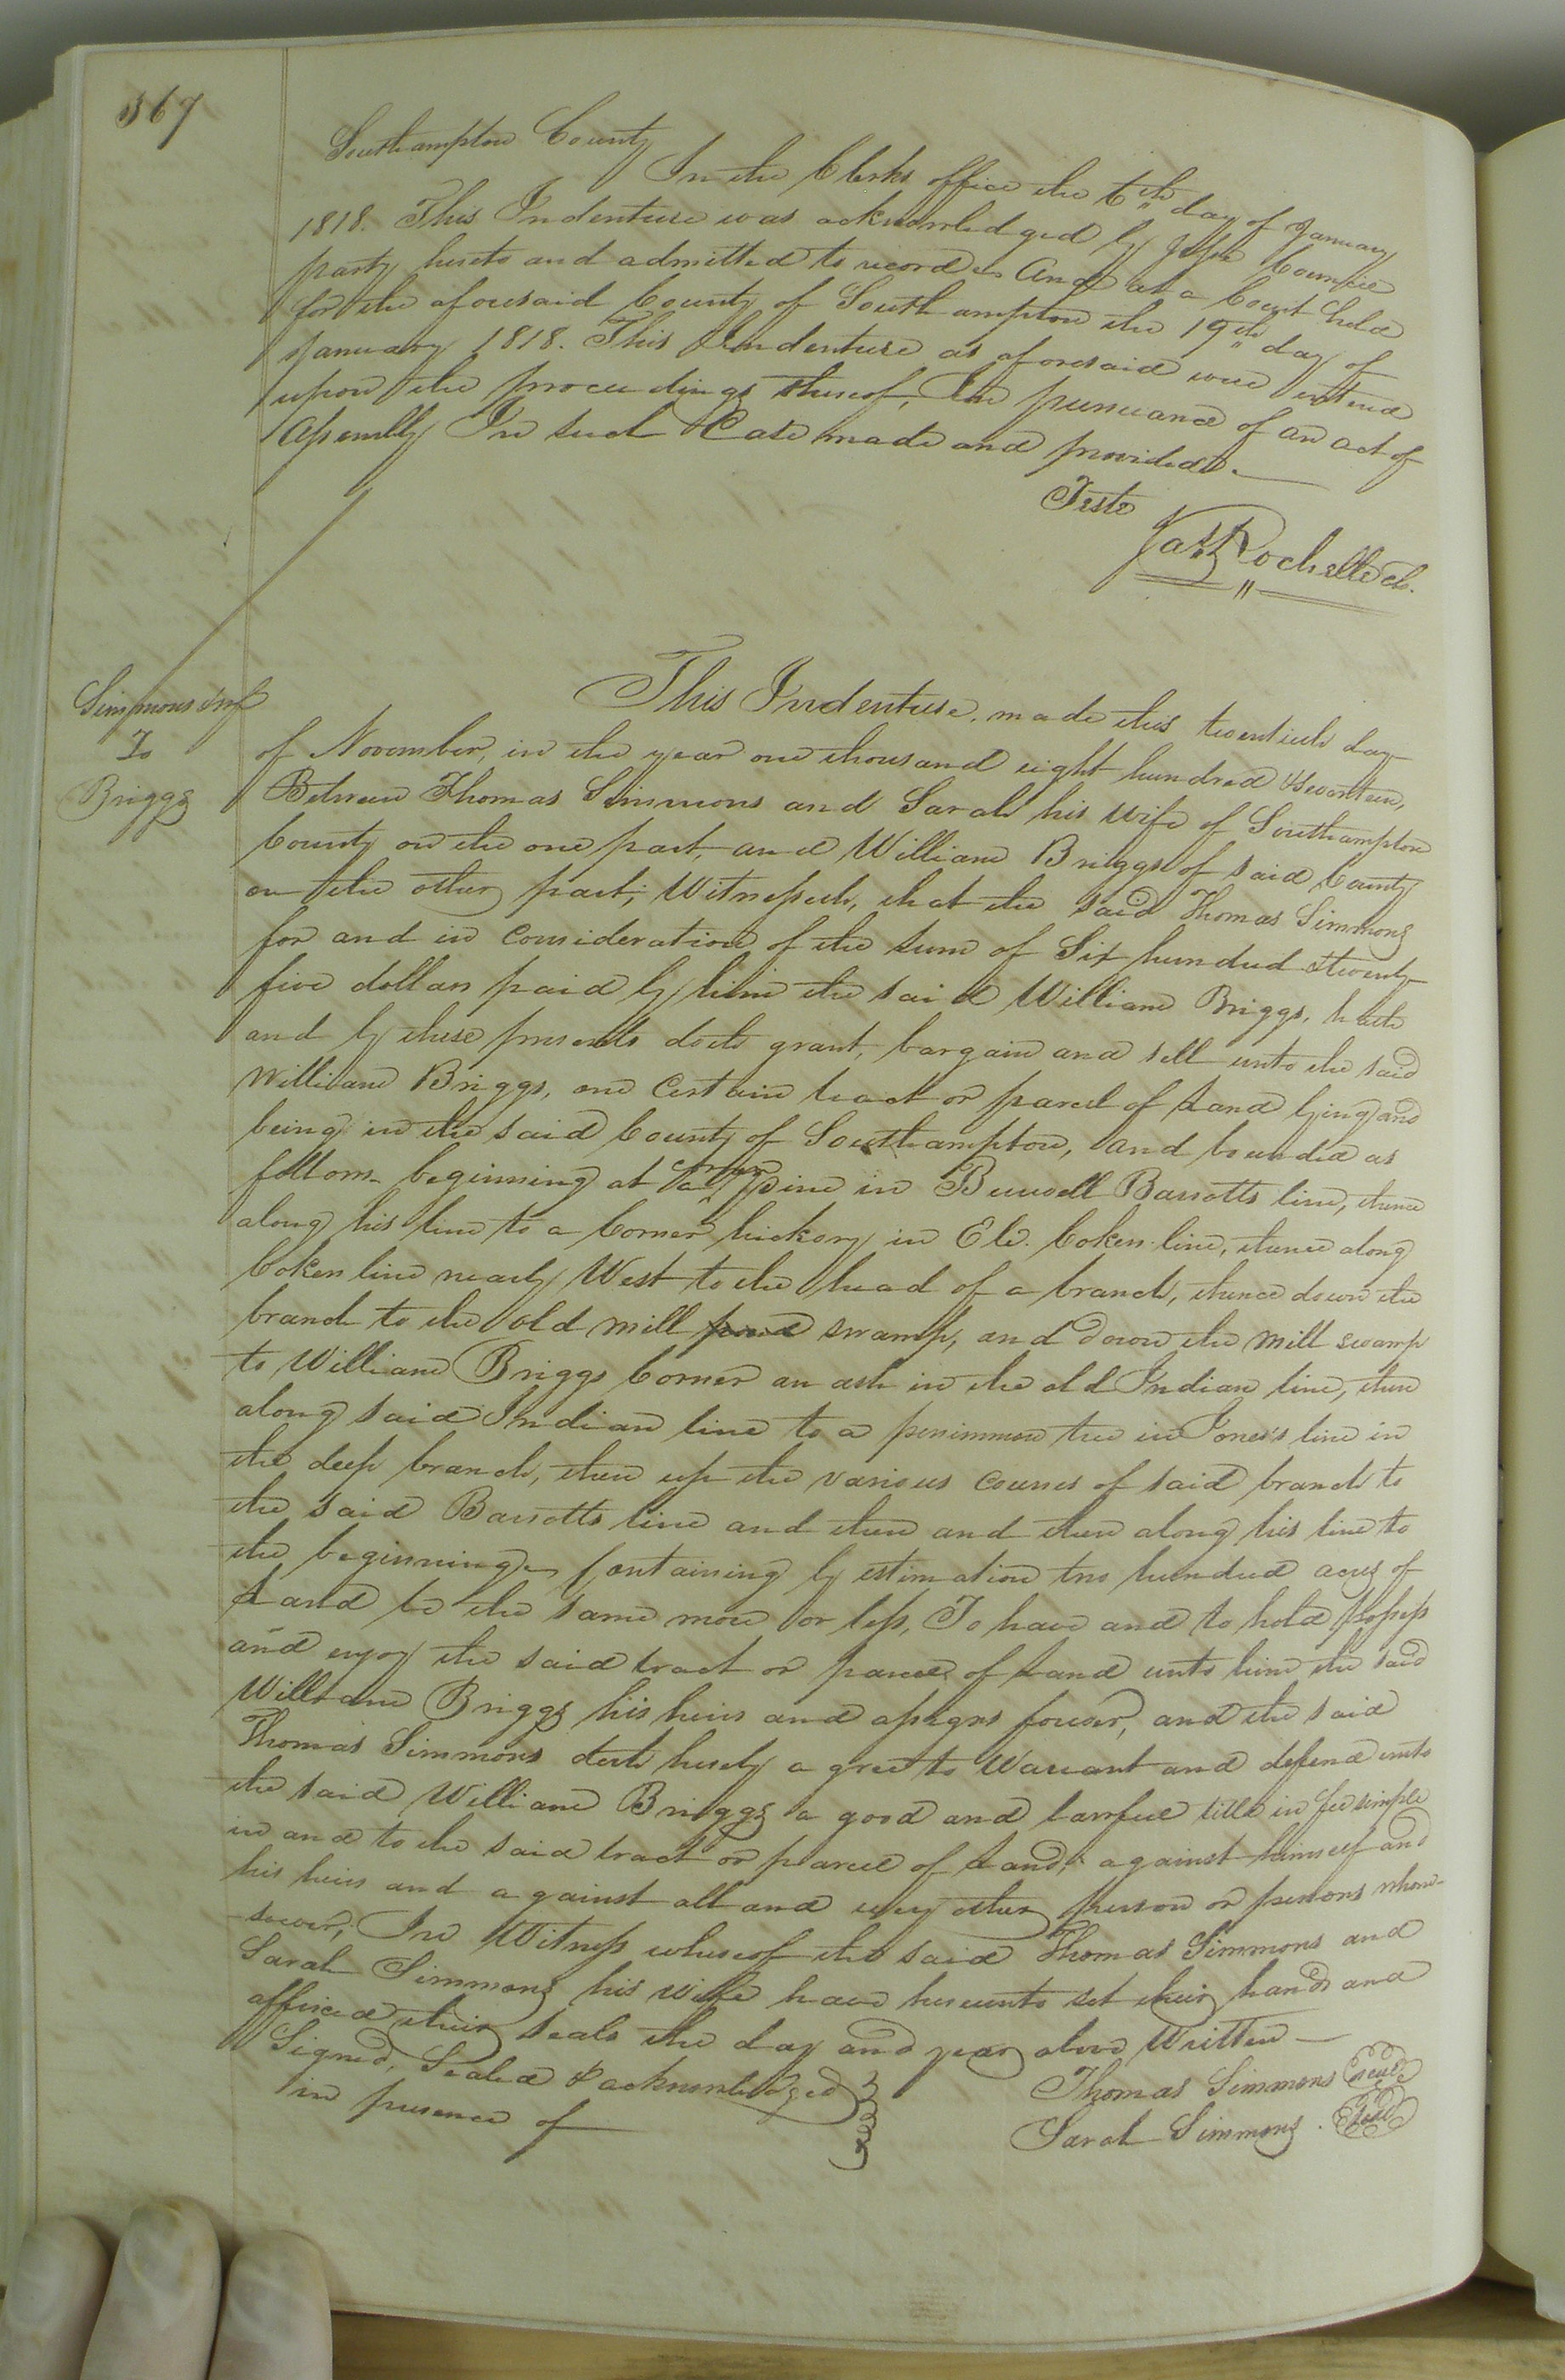 367
Southampton County
In the Clerks office the 6th day of January
1818. This Indenture was acknowledged by Jesse
party hereto and admitted to record And at a Court held
for the aforesaid County of Southampton the 19th day of
January 1818. This Indenture as aforesaid were entered
upon the proceedings thereof, In pursuance of an act of
Assembly In such Case made and provided.
Teste
Jas Rochelle clk.
Simmons & wf
To
Briggs
This Indenture, made this twentieth day
of November, in the year one thousand eight hundred & seventeen,
Between Thomas Simmons and Sarah his wife of Southampton
County on the one part, and William Briggs of said County
on the other part; Witnesseth, that the said Thomas Simmons
for and in Consideration of the sum of Six hundred & twenty
five dollars paid by him the said William Briggs, hath
and by these presents doth grant, bargain and sell unto the said
William Briggs, one Certain tract or parcel of Land lying and
being in the said County of Southampton, and bounded as
follows beginning at a corner pine in Burwell Barrotts line, thence
along his line to a Corner hickory in Ele. Coken line, thence along
Coken line nearly West to the head of a branch, thence down the
branch to the old mill pond swamp, and down the mill swamp
to William Briggs Corner an ash in the old Indian line, then
along said Indian line to a persimmon tree in Jones's line in
the deep branch, then up the various courses of said branch to
the said Barrotts line and then and then along his line to
the beginning Containing by estimation two hundred acres of
Land be the same more or less, To have and to hold possess
and enjoy the said tract or parcel of Land unto him the said
William Briggs his heirs and assigns forever, and the said
Thomas Simmons doth hereby agree to Warrant and defend unto
the said William Briggs a good and lawful title in fee simple
in and to the said tract or parcel of Land, against himself and
his heirs and against all and every other person or persons whom-
soever; In Witness whereof the said Thomas Simmons and
Sarah Simmons his wife have hereunto set their hands and
affixed their seals the day and year above Written
Signed, Sealed & acknowledged
in presence of
Thomas Simmons seal
Sarah Simmons. seal